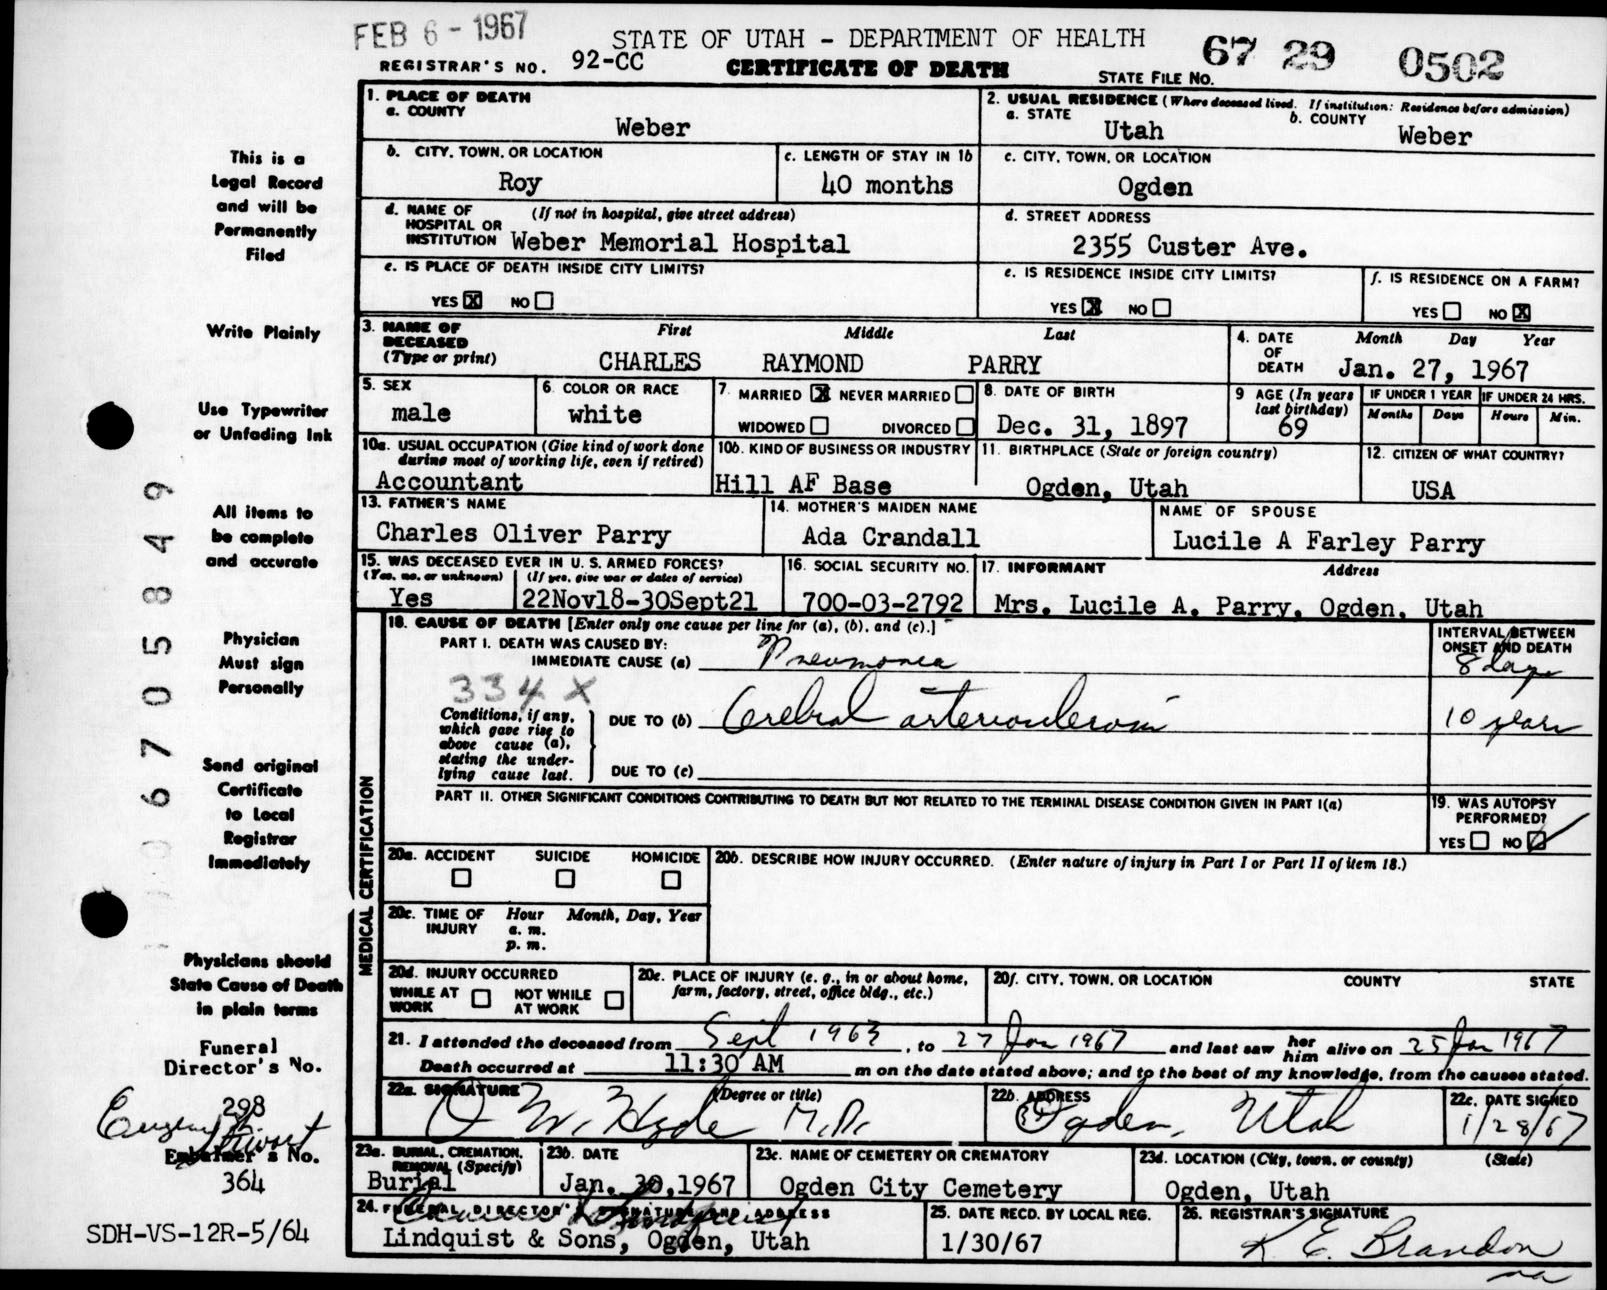 FEB 6 - 1967
STATE OF UTAH - DEPARTMENT OF HEALTH
REGISTRAR'S NO. 92-CC
CERTIFICATE OF DEATH
STATE FILE NO. 67 29 0502
This is a
Legal Record
and will be
Permanently
Filed
Write Plainly
Use Typewriter
or Unfading Ink
All items to
be complete
and accurate
Physician
Must sign
Personally
Send original
Certificate
to Local
Registrar
Immediately
Physicians should
State Cause of Death
in plain terms
Funeral
Director's No.
298
Embalmer's No.
364
SDH-VS-12R-5/64
06705849
1. PLACE OF DEATH
a. COUNTY
Weber
2. USUAL RESIDENCE (Where deceased lived. If institution: Residence before admission)
a. STATE
Utah
b. COUNTY
Weber
b. CITY, TOWN, OR LOCATION
Roy
c. LENGTH OF STAY IN 1b
40 months
c. CITY, TOWN, OR LOCATION
Ogden
d. NAME OF HOSPITAL OR INSTITUTION (If not in hospital, give street address)
Weber Memorial Hospital
d. STREET ADDRESS
2355 Custer Ave.
e. IS PLACE OF DEATH INSIDE CITY LIMITS?
YES X NO
e. IS RESIDENCE INSIDE CITY LIMITS?
YES X NO
f. IS RESIDENCE ON A FARM?
YES NO X
3. NAME OF DECEASED (Type or print)
First Middle Last
CHARLES RAYMOND PARRY
4. DATE OF DEATH
Month Day Year
Jan. 27, 1967
5. SEX
male
6. COLOR OR RACE
white
7. MARRIED X NEVER MARRIED
WIDOWED DIVORCED
8. DATE OF BIRTH
Dec. 31, 1897
9 AGE (In years last birthday)
69
IF UNDER 1 YEAR
Months Days
IF UNDER 24 HRS.
Hours Min.
10a. USUAL OCCUPATION (Give kind of work done during most of working life, even if retired)
Accountant
10b. KIND OF BUSINESS OR INDUSTRY
Hill AF Base
11. BIRTHPLACE (State or foreign country)
Ogden, Utah
12. CITIZEN OF WHAT COUNTRY?
USA
13. FATHER'S NAME
Charles Oliver Parry
14. MOTHER'S MAIDEN NAME
Ada Crandall
NAME OF SPOUSE
Lucile A Farley Parry
15. WAS DECEASED EVER IN U. S. ARMED FORCES?
(Yes, no, or unknown) (If yes, give war or dates of service)
Yes 22Nov18-30Sept21
16. SOCIAL SECURITY NO.
700-03-2792
17. INFORMANT Address
Mrs. Lucile A. Parry, Ogden, Utah
MEDICAL CERTIFICATION
18. CAUSE OF DEATH [Enter only one cause per line for (a), (b), and (c).]
PART I. DEATH WAS CAUSED BY:
IMMEDIATE CAUSE (a) Pneumonia
INTERVAL BETWEEN ONSET AND DEATH
8 days
334 X
Conditions, if any, which gave rise to above cause (a), stating the underlying cause last.
DUE TO (b) Cerebral arteriosclerosis
10 years
DUE TO (c)
PART II. OTHER SIGNIFICANT CONDITIONS CONTRIBUTING TO DEATH BUT NOT RELATED TO THE TERMINAL DISEASE CONDITION GIVEN IN PART I(a)
19. WAS AUTOPSY PERFORMED?
YES NO
20a. ACCIDENT SUICIDE HOMICIDE
20b. DESCRIBE HOW INJURY OCCURRED. (Enter nature of injury in Part I or Part II of item 18.)
20c. TIME OF INJURY Hour Month, Day, Year
a. m.
p. m.
20d. INJURY OCCURRED
WHILE AT WORK NOT WHILE AT WORK
20e. PLACE OF INJURY (e. g., in or about home, farm, factory, street, office bldg., etc.)
20f. CITY, TOWN, OR LOCATION COUNTY STATE
21. I attended the deceased from Sept 1963, to 27 Jan 1967 and last saw her him alive on 25 Jan 1967
Death occurred at 11:30 AM m on the date stated above; and to the best of my knowledge, from the causes stated.
22a. SIGNATURE (Degree or title)
O W. Hyde M.D.
22b. ADDRESS
Ogden, Utah
22c. DATE SIGNED
1/28/67
23a. BURIAL, CREMATION, REMOVAL (Specify)
Burial
23b. DATE
Jan. 30, 1967
23c. NAME OF CEMETERY OR CREMATORY
Ogden City Cemetery
23d. LOCATION (City, town, or county) (State)
Ogden, Utah
24. FUNERAL DIRECTOR'S SIGNATURE AND ADDRESS
Lindquist & Sons, Ogden, Utah
25. DATE RECD. BY LOCAL REG.
1/30/67
26. REGISTRAR'S SIGNATURE
K E. Brandon